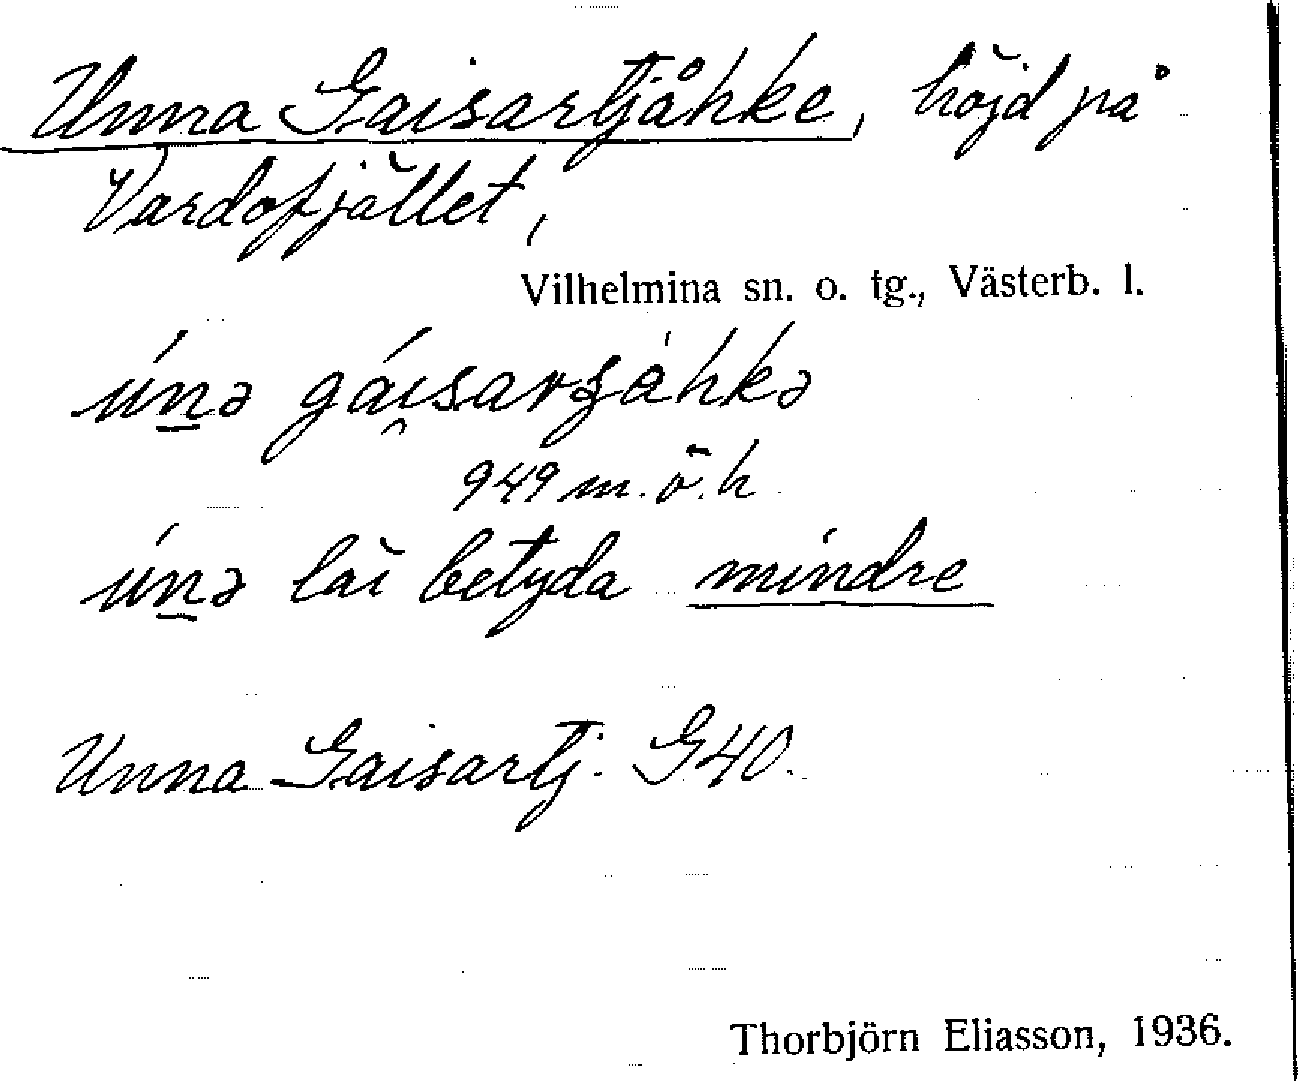 Unna Gaisartjåhke, höjd på
Vardofjället,
Vilhelmina sn. o. tg., Västerb. l.
únə gáisarʒåhkə
949 m.ö.h.
únə lär betyda mindre
Unna Gaisartj. G40.
Thorbjörn Eliasson, 1936.